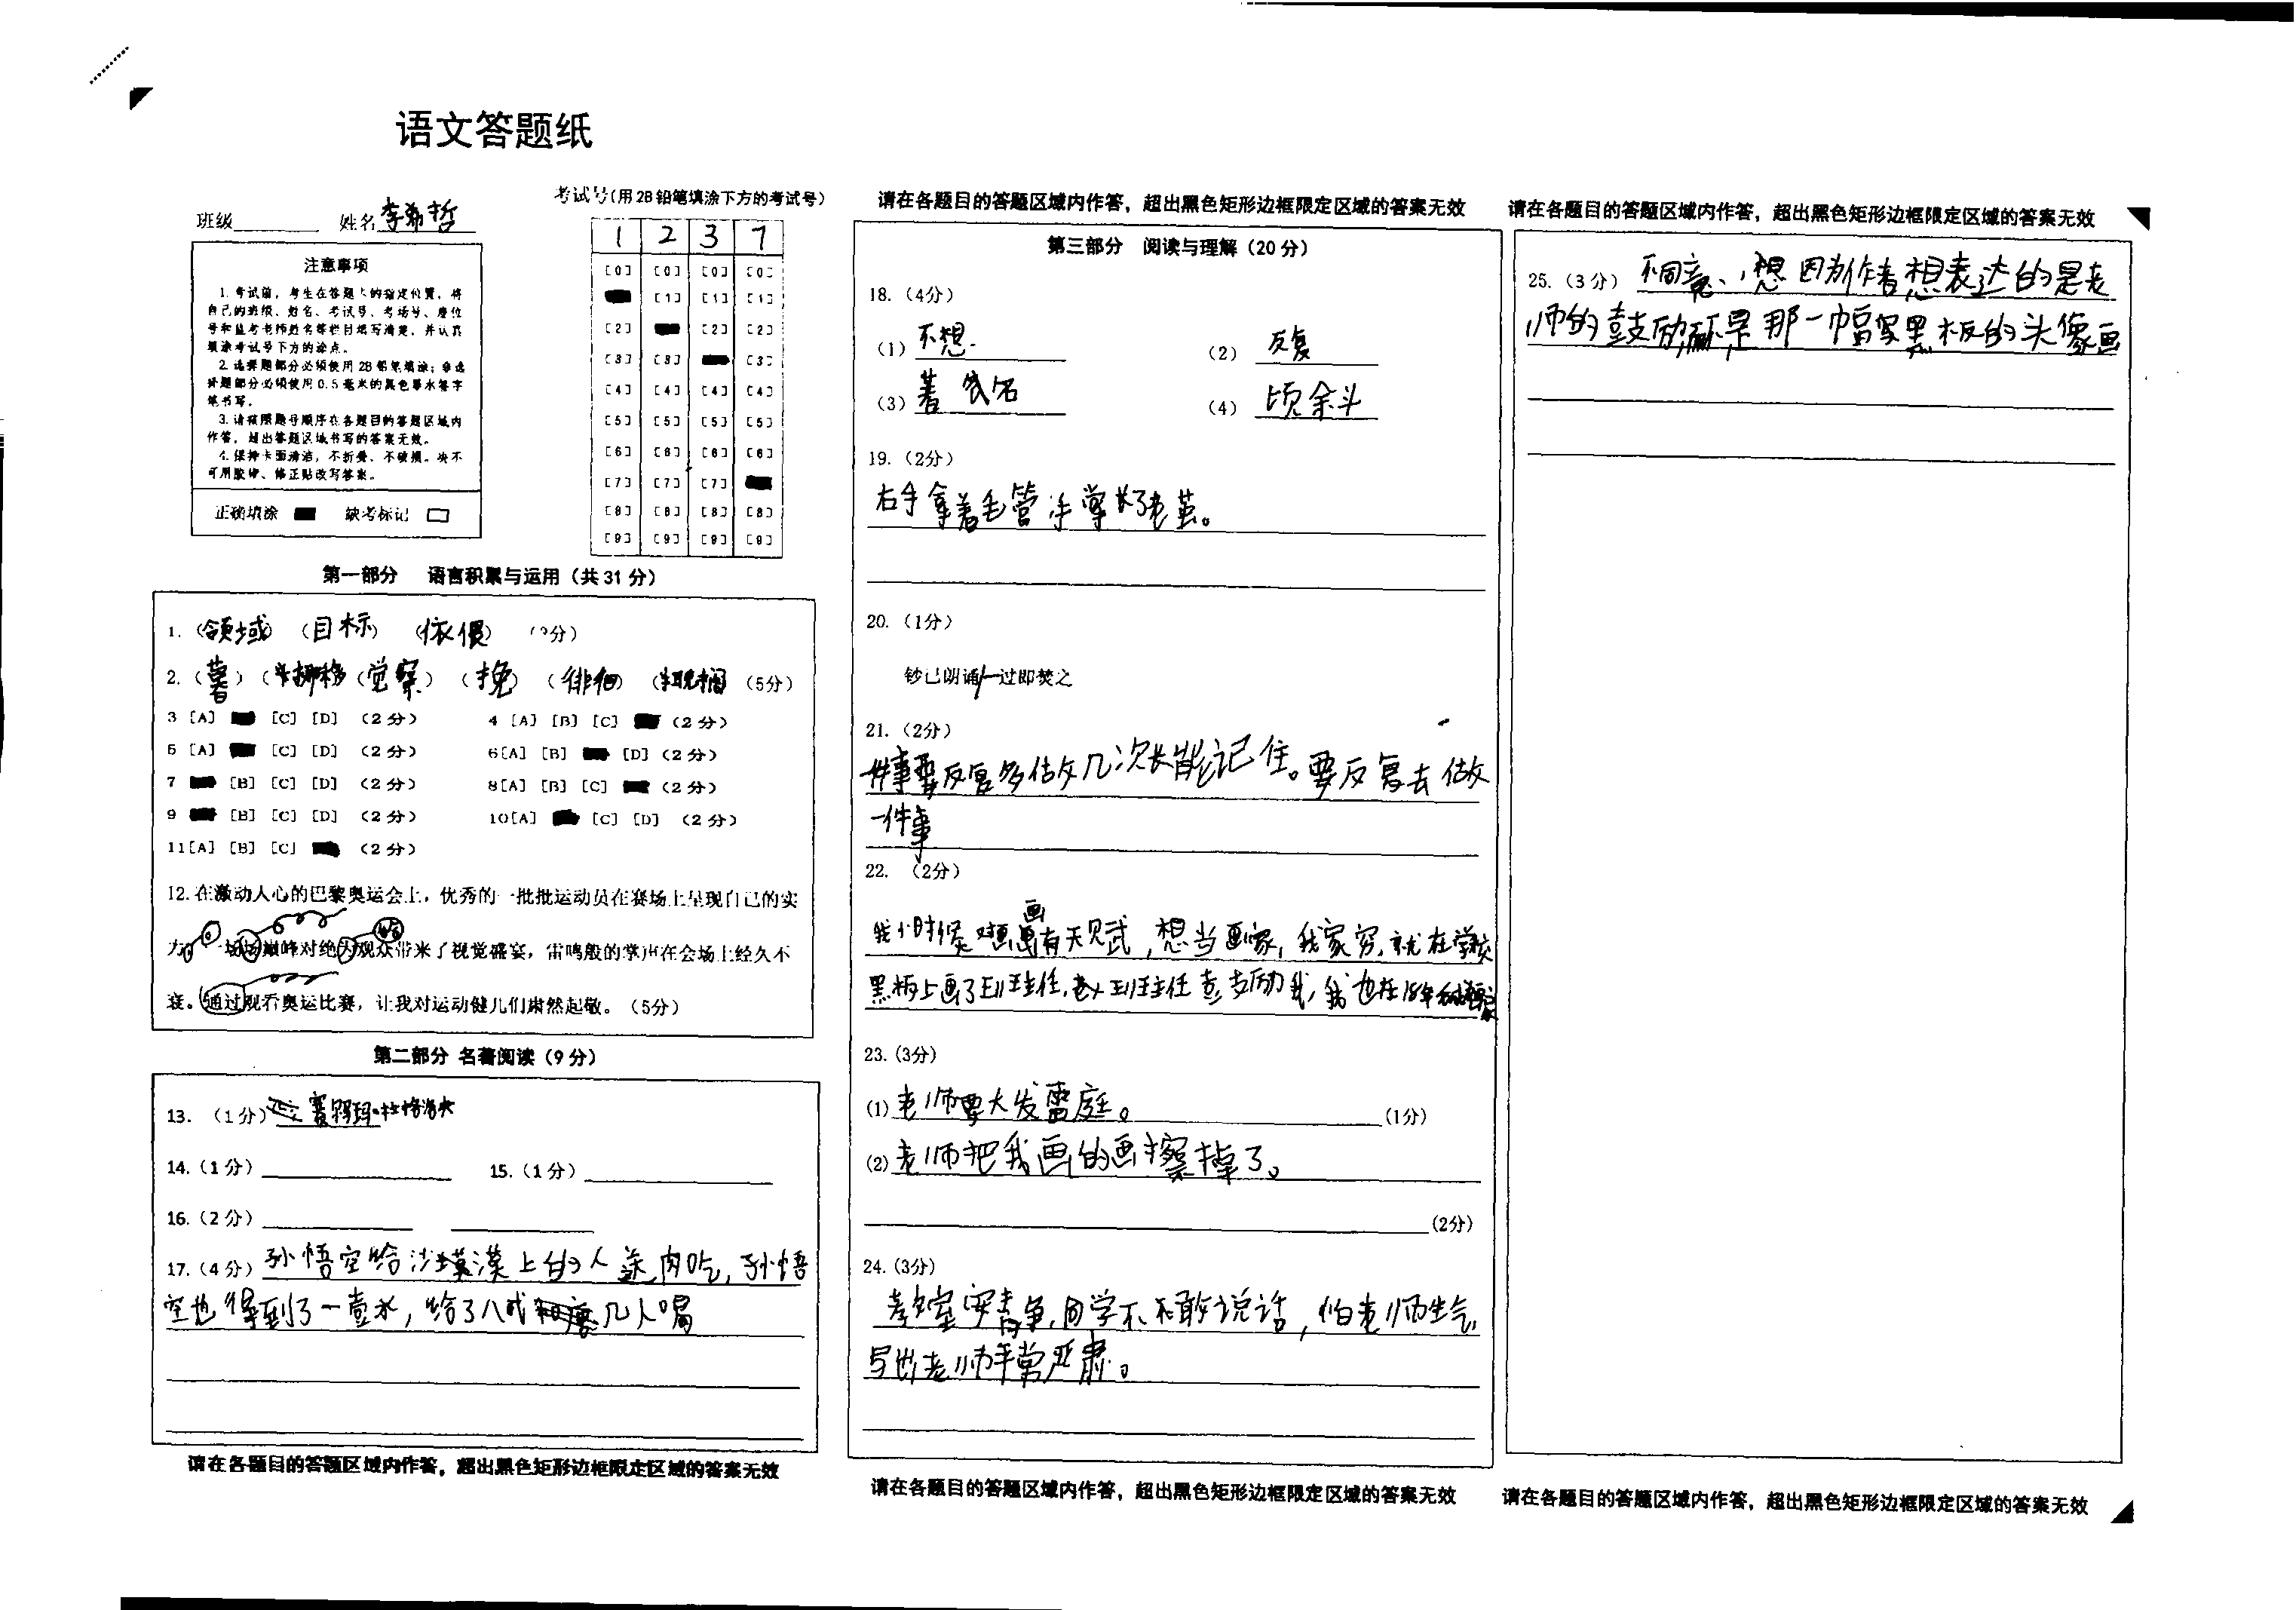 语文答题纸
班级 姓名 李希哲
考试号(用2B铅笔填涂下方的考试号)
1 2 3 7
[0] [0] [0] [0]
[1] [1] [1]
[2] [2] [2]
[3] [3] [3]
[4] [4] [4] [4]
[5] [5] [5] [5]
[6] [6] [6] [6]
[7] [7] [7]
[8] [8] [8] [8]
[9] [9] [9] [9]
注意事项
1. 考试前，考生在答题卡的指定位置，将
自己的班级、姓名、考试号、考场号、座位
号和监考老师姓名等栏目填写清楚，并认真
填涂考试号下方的涂点。
2. 选择题部分必须使用2B铅笔填涂；非选
择题部分必须使用0.5毫米的黑色墨水签字
笔书写。
3. 请按照题号顺序在各题目的答题区域内
作答，超出答题区域书写的答案无效。
4. 保持卡面清洁，不折叠、不破损。决不
可用胶带、修正贴改写答案。
正确填涂 缺考标记
第一部分 语言积累与运用（共31分）
1.（领域）（目标）（依偎）
2.（薯）（觉察）（挽）（徘徊）（5分）
3 [A] [C] [D] （2分） 4 [A] [B] [C] （2分）
5 [A] [C] [D] （2分） 6[A] [B] [D]（2分）
7 [B] [C] [D] （2分） 8[A] [B] [C] （2分）
9 [B] [C] [D] （2分） 10[A] [C] [D] （2分）
11[A] [B] [C] （2分）
12. 在激动人心的巴黎奥运会上，优秀的一批批运动员在赛场上呈现自己的实
力。一场场巅峰对绝为观众带来了视觉盛宴，雷鸣般的掌声在会场上经久不
衰。通过观看奥运比赛，让我对运动健儿们肃然起敬。（5分）
第二部分 名著阅读（9分）
13. （1分）
14.（1分） 15.（1分）
16.（2分）
17.（4分）孙悟空给沙漠上的人送肉吃，孙悟
空也得到了一壶水，给了八戒几人喝
请在各题目的答题区域内作答，超出黑色矩形边框限定区域的答案无效
请在各题目的答题区域内作答，超出黑色矩形边框限定区域的答案无效
第三部分 阅读与理解（20分）
18.（4分）
（1）不想. （2）反复
（3）著名 （4）顷余斗
19.（2分）
右手拿着毛管手掌长了老茧。
20.（1分）
钞已朗诵/一过即焚之
21.（2分）
件事要反复多做几次长能记住。要反复去做
一件事
22. （2分）
我小时候对画画有天赋，想当画家，我家穷，就在学校
黑板上画了班主任，班主任支励我，我也在18年
23.（3分）
（1）老师要大发雷庭。（1分）
（2）老师把我画的画擦掉了。
（2分）
24.（3分）
教室安青争，同学不敢说话，怕老师生气，
写出老师平常严肃。
请在各题目的答题区域内作答，超出黑色矩形边框限定区域的答案无效
请在各题目的答题区域内作答，超出黑色矩形边框限定区域的答案无效
25.（3分）不同意、因为作者想表达的是老
师的鼓励是那一幅写黑板的头像画
请在各题目的答题区域内作答，超出黑色矩形边框限定区域的答案无效